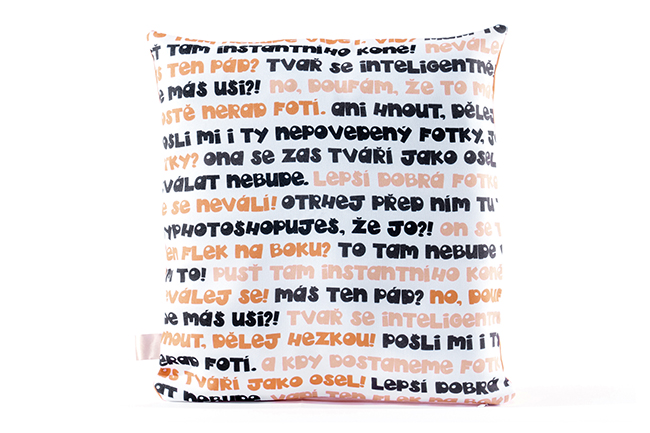 ŠŤ TAM INSTANTNÍHO KONĚ! NEVÁLE
TEN PÁD? TVAŘ SE INTELIGENTNĚ
MÁŠ UŠI?! NO, DOUFÁM, ŽE TO M
STĚ NERAD FOTÍ. ANI HNOUT, DĚLEJ
POŠLI MI I TY NEPOVEDENÝ FOTKY, J
TKY? ONA SE ZAS TVÁŘÍ JAKO OSEL
VÁLAT NEBUDE. LEPŠÍ DOBRÁ FOTK
SE NEVÁLÍ! OTRHEJ PŘED NÍM TU
YPHOTOSHOPUJEŠ, ŽE JO?! ON SE T
EN FLEK NA BOKU? TO TAM NEBUDE
TO! PUSŤ TAM INSTANTNÍHO KONĚ
VÁLEJ SE! MÁŠ TEN PÁD? NO, DOUF
DE MÁŠ UŠI?! TVAŘ SE INTELIGENTN
HNOUT, DĚLEJ HEZKOU! POŠLI MI I T
NERAD FOTÍ. A KDY DOSTANEME FOT
AS TVÁŘÍ JAKO OSEL! LEPŠÍ DOBRÁ
LAT NEBUDE. TEN FLEK NA BOKU